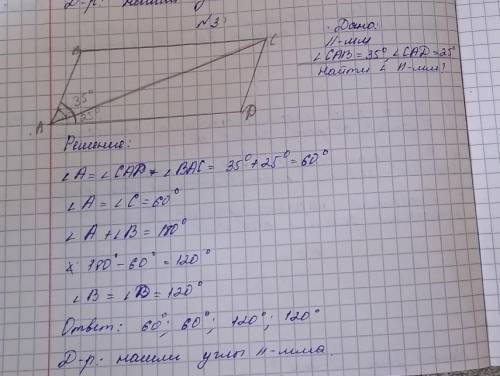 Д-р: нашли у
№3
Дано:
II-мм
∠CAB = 35°, ∠CAD = 25°
Найти ∠ II-мм
B
C
35°
25°
A
D
Решение:
∠A = ∠CAD + ∠BAC = 35° + 25° = 60°
∠A = ∠C = 60°
∠A + ∠B = 180°
180° - 60° = 120°
∠B = ∠B = 120°
Ответ: 60°; 60°; 120°; 120°
Д-р: нашли углы II-мма.